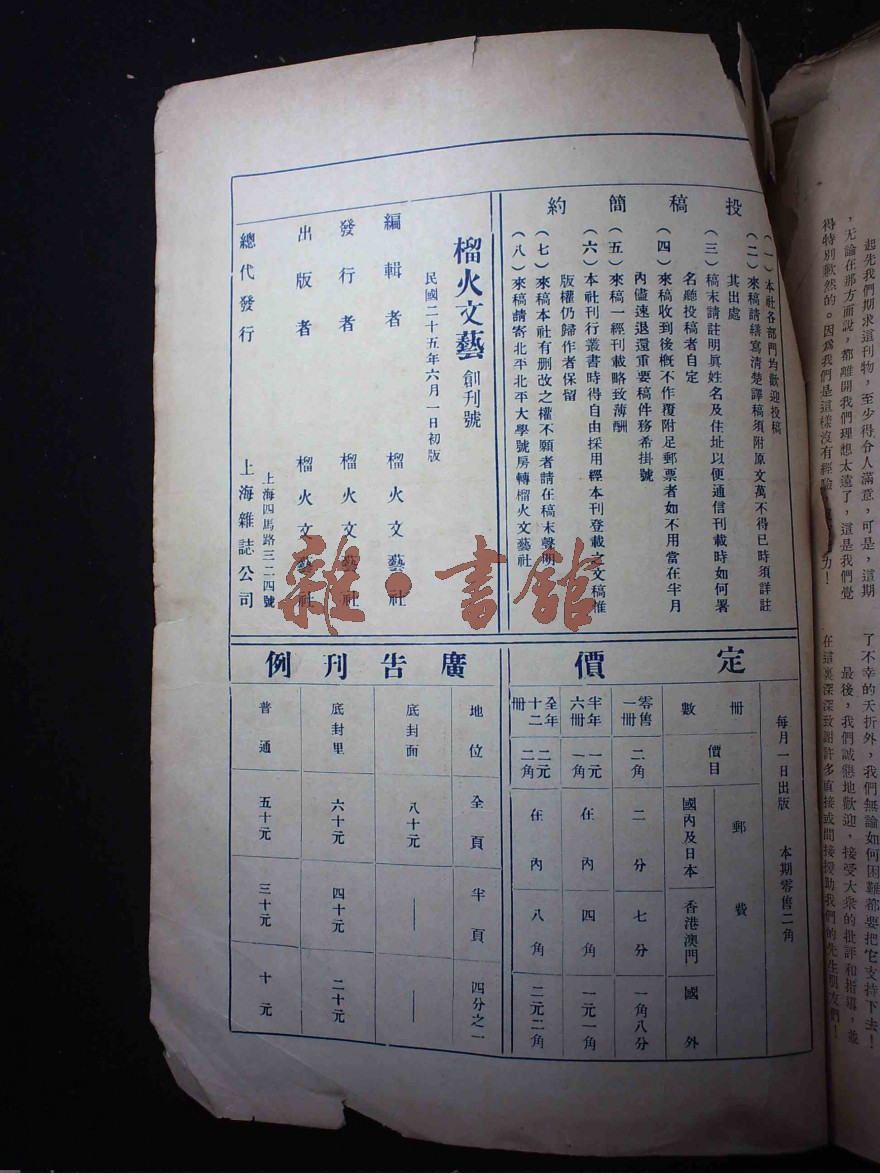 投稿簡約
(一)本社各部門均歡迎投稿
(二)來稿請繕寫清楚譯稿須附原文萬不得已時須詳註
其出處
(三)稿末請註明眞姓名及住址以便通信刊載時如何署
名聽投稿者自定
(四)來稿收到後槪不作覆附足郵票者如不用當在半月
內儘速退還重要稿件務希掛號
(五)來稿一經刊載略致薄酬
(六)本社刊行叢書時得自由採用經本刊登載之文稿惟
版權仍歸作者保留
(七)來稿本社有刪改之權不願者請在稿末聲明
(八)來稿請寄北平北平大學號房轉榴火文藝社
榴火文藝 創刊號
民國二十五年六月一日初版
編輯者 榴火文藝社
發行者 榴火文藝社
出版者 榴火文藝社
上海四馬路三二四號
總代發行 上海雜誌公司
雜·書館
定價
每月一日出版 本期零售二角
冊數 價目 郵費
國內及日本 香港澳門 國外
零售一冊 二角 二分 七分 一角八分
半年六冊 一元一角 在內 四角 一元一角
全年十二冊 二元二角 在內 八角 二元二角
廣告刊例
地位 全頁 半頁 四分之一
底封面 八十元 — —
底封里 六十元 四十元 二十元
普通 五十元 三十元 十元
起先我們期求這刊物,至少得令人滿意,可是,這期
,无論在那方面說,都離開我們理想太遠了,這是我們覺
得特別歉然的。因爲我們是這樣沒有經驗
力!
了不幸的夭折外,我們無論如何困難都要把它支持下去!
最後,我們誠懇地歡迎,接受大衆的批評和指導,並
在這裏深深致謝許多直接或間接援助我們的先生朋友們!